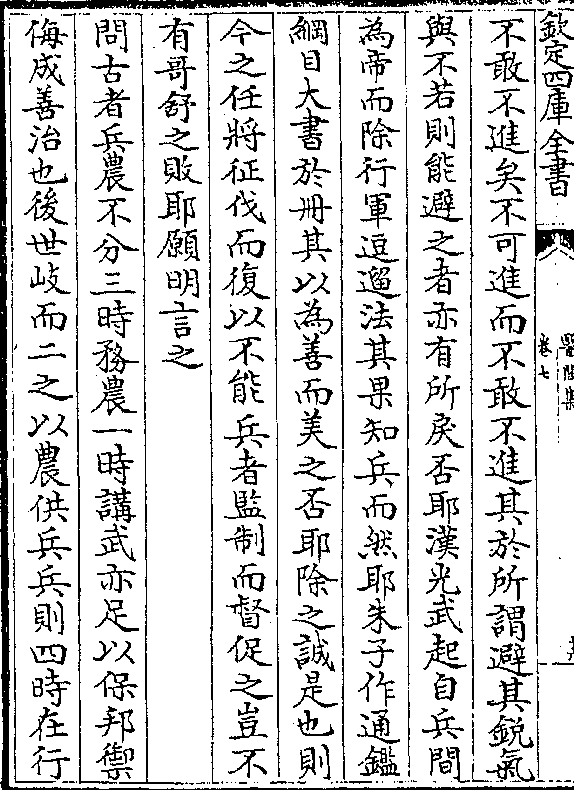 欽定四庫全書
醫閭集
卷七
不敢不進矣不可進而不敢不進其於所謂避其銳氣
與不若則能避之者亦有所戾否耶漢光武起自兵間
為帝而除行軍逗遛法其果知兵而然耶朱子作通鑑
綱目大書於冊其以為善而美之否耶除之誠是也則
今之任將征伐而復以不能兵者監制而督促之豈不
有哥舒之敗耶願明言之
問古者兵農不分三時務農一時講武亦足以保邦禦
侮成善治也後世岐而二之以農供兵兵則四時在行